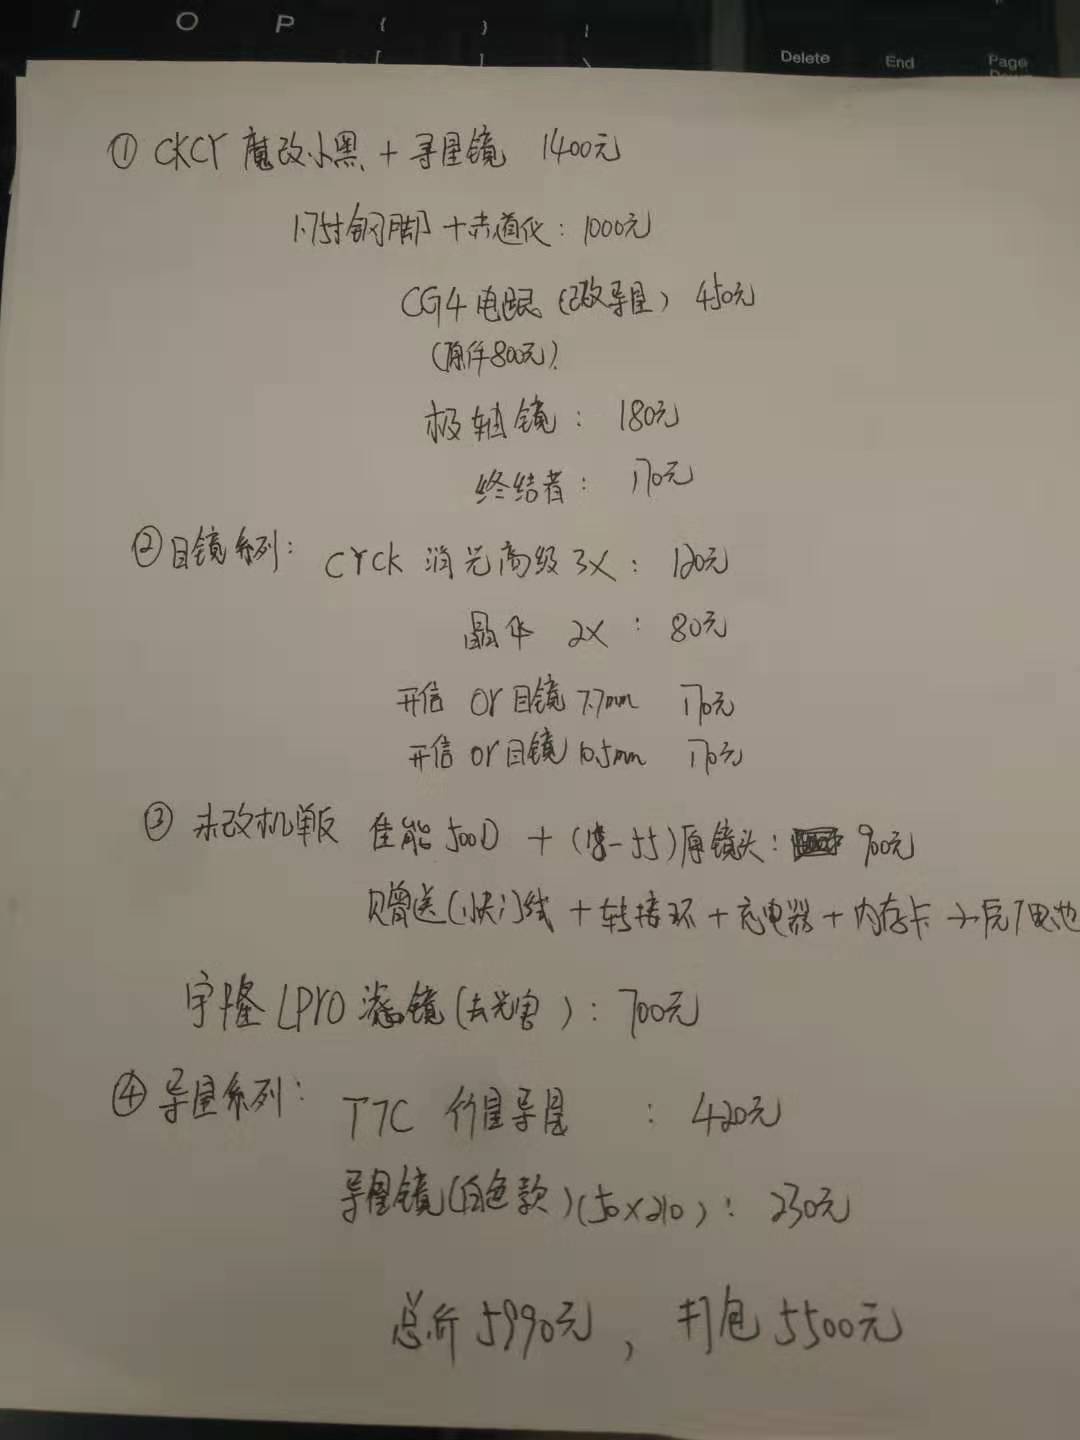 I O P { } |
[ ] \ Delete End Page Down
① CKCY 魔改小黑 + 寻星镜 1400元
1.75寸钢脚 + 赤道仪: 1000元
CG4 电跟 (改导星) 450元
(原件800元)
极轴镜: 180元
终结者: 170元
② 目镜系列: CYCK 消光高级 3X: 120元
晶华 2X: 80元
开信 or目镜 7.7mm 170元
开信 or目镜 10.5mm 170元
③ 未改机单反 佳能500D + (18-55) 原镜头: 900元
赠送(快门)线 + 转接环 + 充电器 + 内存卡 电池
宇隆 LPro 滤镜(去光害): 700元
④ 导星系列: T7C 行星导星: 420元
导星镜(白色款)(50X210): 230元
总价 5990元, 打包 5500元